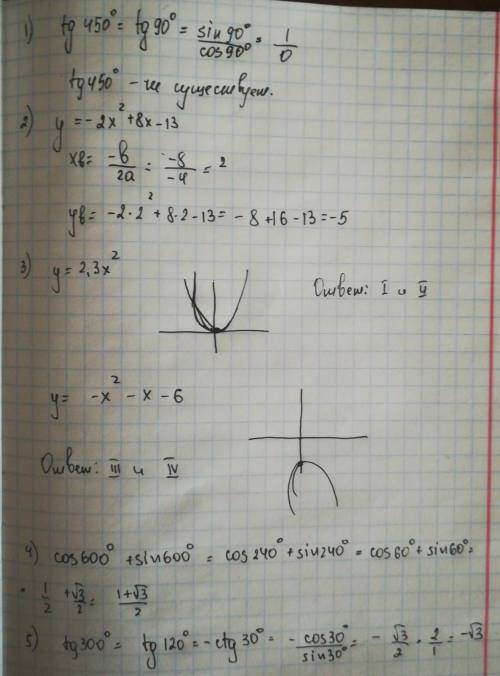 1) tg 450° = tg 90° = sin 90° / cos 90° = 1/0
tg 450° - не существует.
2) y = -2x² + 8x - 13
xв = -в/2a = -8/-4 = 2
yв = -2·2² + 8·2 - 13 = -8 + 16 - 13 = -5
3) y = 2,3x²
Ответ: I и II
y = -x² - x - 6
Ответ: III и IV
4) cos 600° + sin 600° = cos 240° + sin 240° = cos 60° + sin 60° =
= 1/2 + √3/2 = 1+√3/2
5) tg 300° = tg 120° = -ctg 30° = - cos 30°/sin 30° = - √3/2 · 2/1 = -√3